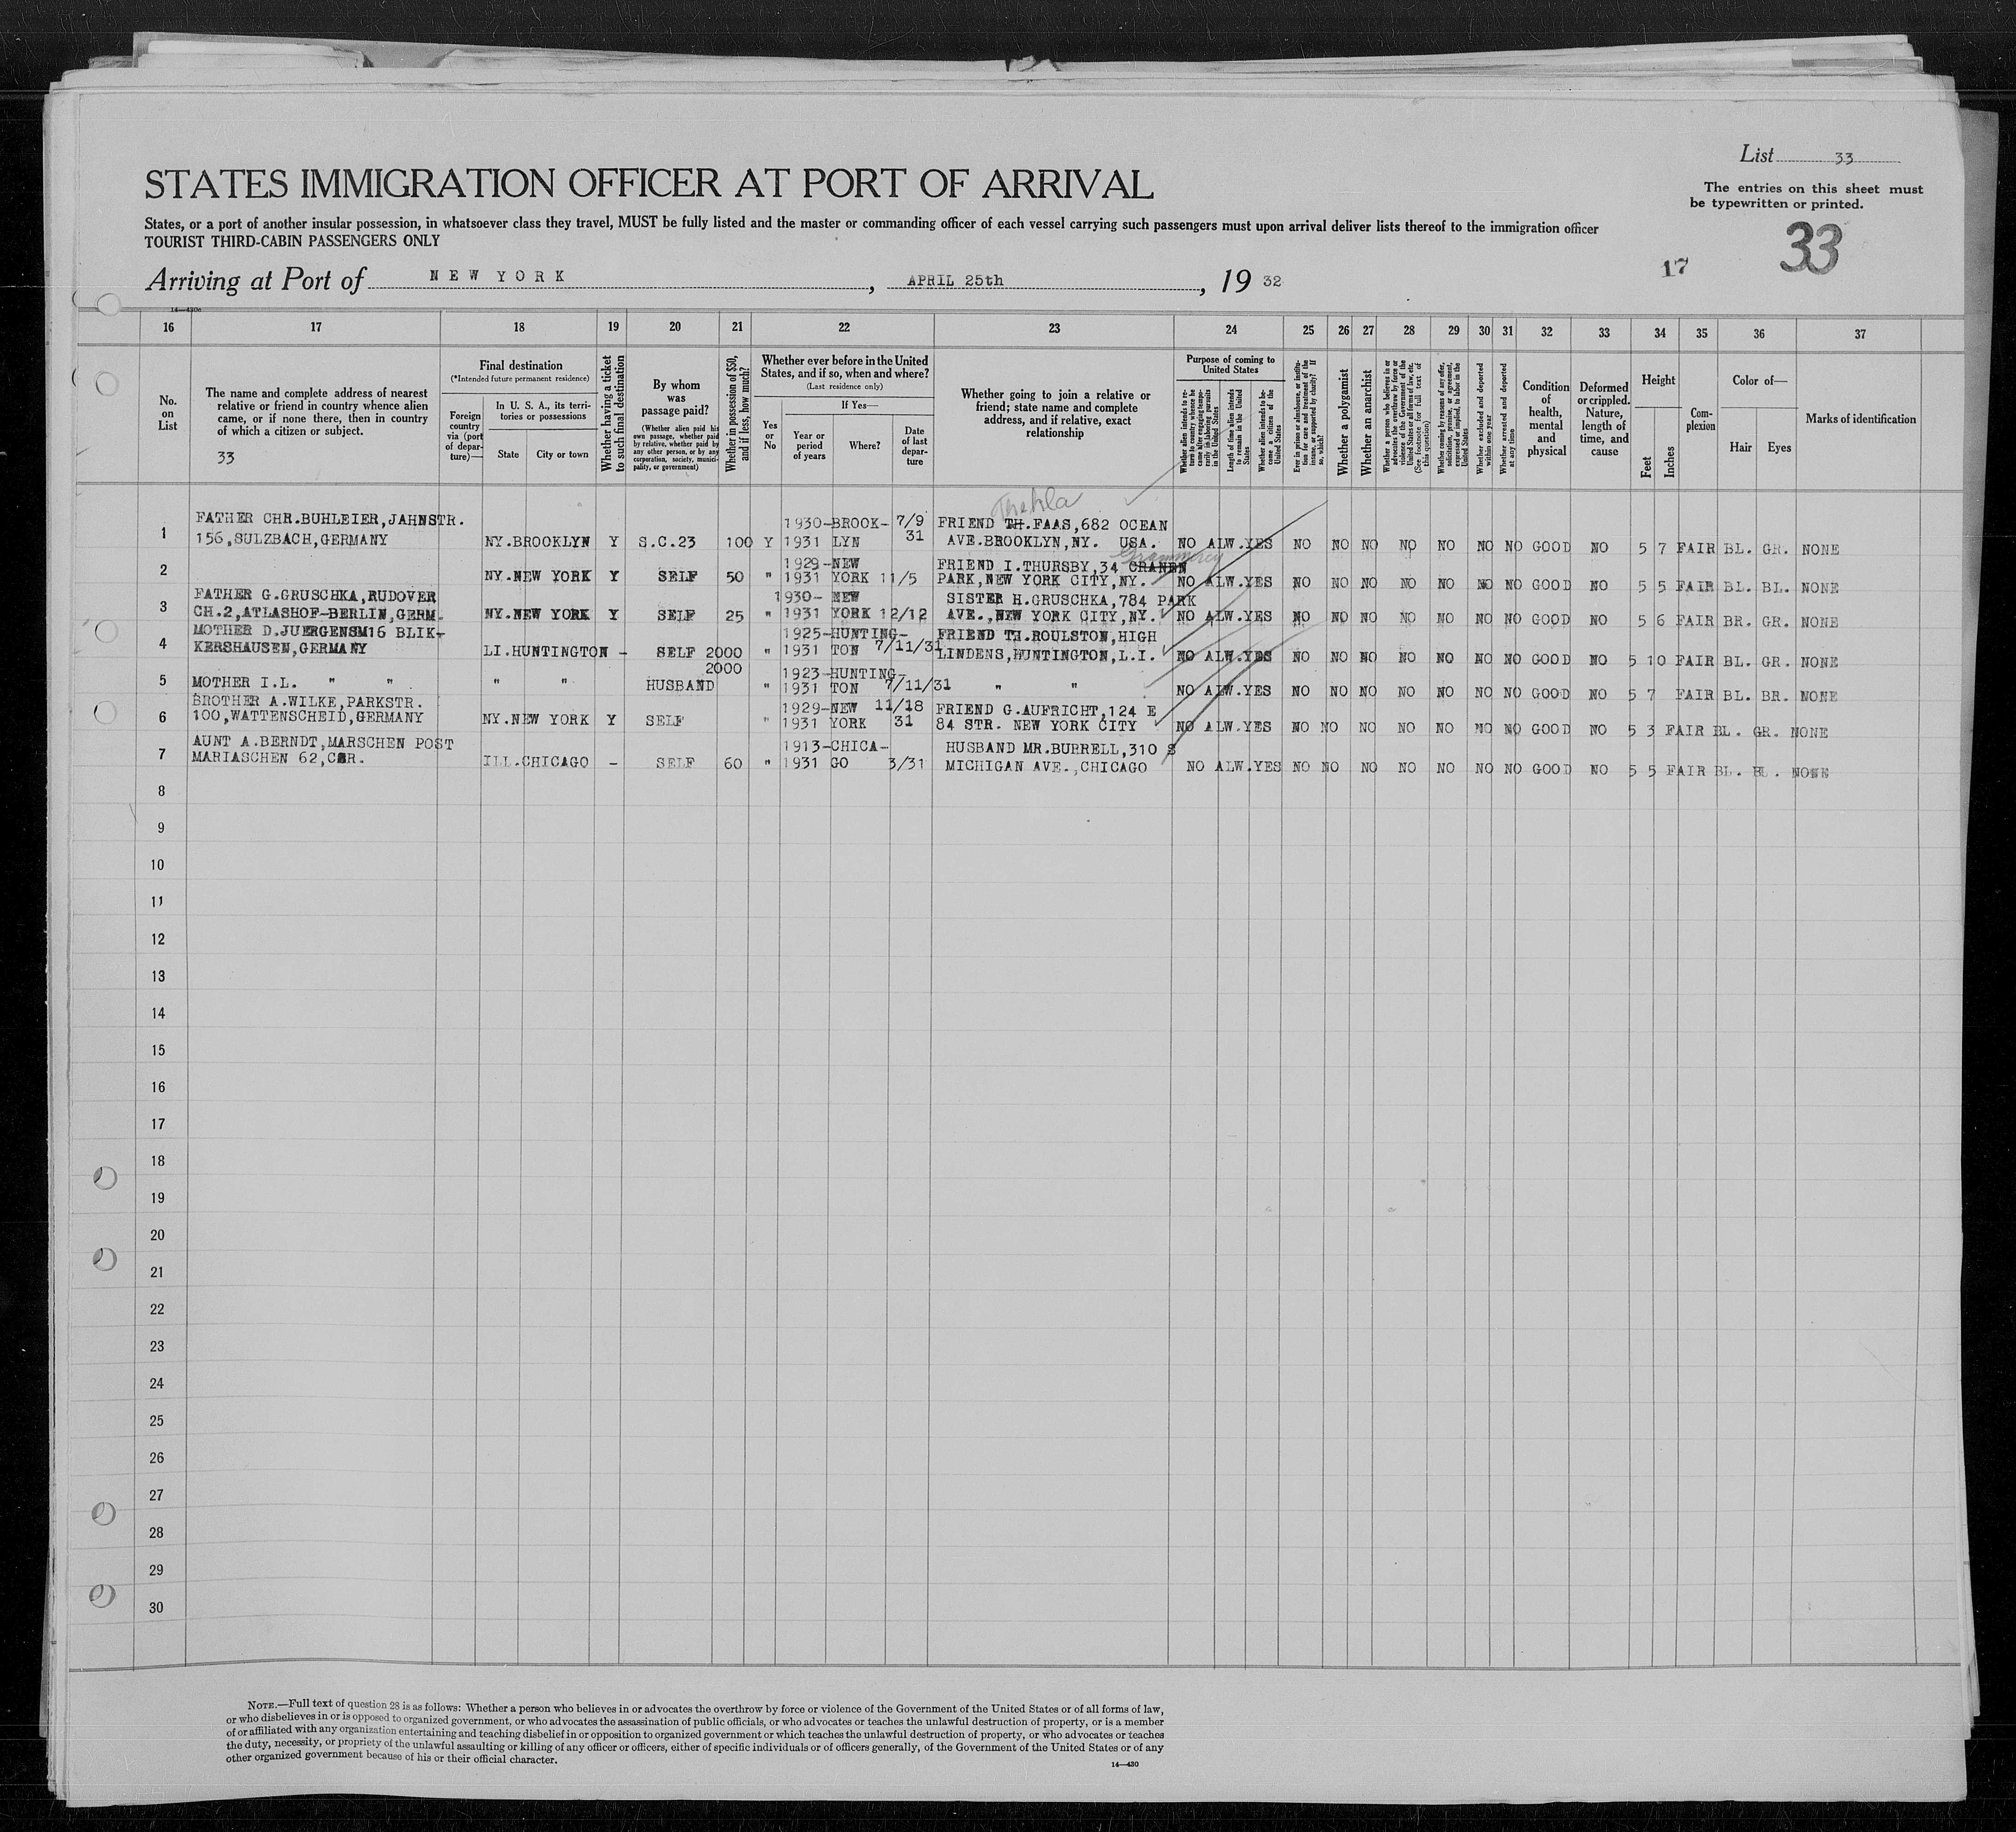 List 33
STATES IMMIGRATION OFFICER AT PORT OF ARRIVAL
The entries on this sheet must
be typewritten or printed.
States, or a port of another insular possession, in whatsoever class they travel, MUST be fully listed and the master or commanding officer of each vessel carrying such passengers must upon arrival deliver lists thereof to the immigration officer
TOURIST THIRD-CABIN PASSENGERS ONLY
33
17
Arriving at Port of NEW YORK, APRIL 25th, 19 32
14—430c
16 17 18 19 20 21 22 23 24 25 26 27 28 29 30 31 32 33 34 35 36 37
No. on List
The name and complete address of nearest
relative or friend in country whence alien
came, or if none there, then in country
of which a citizen or subject.
33
Final destination
(*Intended future permanent residence)
Foreign country via (port of departure)—
In U. S. A., its territories or possessions
State City or town
Whether having a ticket to such final destination
By whom was passage paid?
(Whether alien paid his own passage, whether paid by relative, whether paid by any other person, or by any corporation, society, municipality, or government)
Whether in possession of $50, and if less, how much?
Whether ever before in the United
States, and if so, when and where?
(Last residence only)
Yes or No
If Yes—
Year or period of years
Where?
Date of last departure
Whether going to join a relative or
friend; state name and complete
address, and if relative, exact
relationship
Purpose of coming to United States
Whether alien intends to return to country whence he came after engaging temporarily in laboring pursuits in the United States
Length of time alien intends to remain in the United States
Whether alien intends to become a citizen of the United States
Ever in prison or almshouse, or institution for care and treatment of the insane, or supported by charity? If so, which?
Whether a polygamist
Whether an anarchist
Whether a person who believes in or advocates the overthrow by force or violence of the Government of the United States or all forms of law, etc. (See footnote for full text of this question)
Whether coming by reasons of any offer, solicitation, promise, or agreement, expressed or implied, to labor in the United States
Whether excluded and deported within one year
Whether arrested and deported at any time
Condition of health, mental and physical
Deformed or crippled. Nature, length of time, and cause
Height
Feet Inches
Complexion
Color of—
Hair Eyes
Marks of identification
Thekla
1 FATHER CHR.BUHLEIER,JAHNSTR. 1930-BROOK- 7/9 FRIEND TH.FAAS,682 OCEAN
156,SULZBACH,GERMANY NY.BROOKLYN Y S.C.23 100 Y 1931 LYN 31 AVE.BROOKLYN,NY. USA. NO ALW.YES NO NO NO NO NO NO NO GOOD NO 5 7 FAIR BL. GR. NONE
Grammercy
2 1929-NEW FRIEND I.THURSBY,34 CRANEN
NY.NEW YORK Y SELF 50 " 1931 YORK 11/5 PARK,NEW YORK CITY,NY. NO ALW.YES NO NO NO NO NO NO NO GOOD NO 5 5 FAIR BL. BL. NONE
3 FATHER G.GRUSCHKA,RUDOVER 1930- NEW SISTER H.GRUSCHKA,784 PARK
CH.2,ATLASHOF-BERLIN,GERM. NY.NEW YORK Y SELF 25 " 1931 YORK 12/12 AVE.,NEW YORK CITY,NY. NO ALW.YES NO NO NO NO NO NO NO GOOD NO 5 6 FAIR BR. GR. NONE
4 MOTHER D.JUERGENSM16 BLIK- 1925-HUNTING- FRIEND TH.ROULSTON,HIGH
KERSHAUSEN,GERMANY LI.HUNTINGTON - SELF 2000 " 1931 TON 7/11/31 LINDENS,HUNTINGTON,L.I. NO ALW.YES NO NO NO NO NO NO NO GOOD NO 5 10 FAIR BL. GR. NONE
2000 1923-HUNTING-
5 MOTHER I.L. " " " " HUSBAND " 1931 TON 7/11/31 " " NO ALW.YES NO NO NO NO NO NO NO GOOD NO 5 7 FAIR BL. BR. NONE
6 BROTHER A.WILKE,PARKSTR. 1929-NEW 11/18 FRIEND G.AUFRICHT,124 E
100,WATTENSCHEID,GERMANY NY.NEW YORK Y SELF " 1931 YORK 31 84 STR. NEW YORK CITY NO ALW.YES NO NO NO NO NO NO NO GOOD NO 5 3 FAIR BL. GR. NONE
7 AUNT A.BERNDT,MARSCHEN POST 1913-CHICA- HUSBAND MR.BURRELL,310 S
MARIASCHEN 62,CSR. ILL.CHICAGO - SELF 60 " 1931 GO 3/31 MICHIGAN AVE.,CHICAGO NO ALW.YES NO NO NO NO NO NO NO GOOD NO 5 5 FAIR BL. BL. NONE
8
9
10
11
12
13
14
15
16
17
18
19
20
21
22
23
24
25
26
27
28
29
30
NOTE.—Full text of question 28 is as follows: Whether a person who believes in or advocates the overthrow by force or violence of the Government of the United States or of all forms of law,
or who disbelieves in or is opposed to organized government, or who advocates the assassination of public officials, or who advocates or teaches the unlawful destruction of property, or is a member
of or affiliated with any organization entertaining and teaching disbelief in or opposition to organized government or which teaches the unlawful destruction of property, or who advocates or teaches
the duty, necessity, or propriety of the unlawful assaulting or killing of any officer or officers, either of specific individuals or of officers generally, of the Government of the United States or of any
other organized government because of his or their official character.
14—430